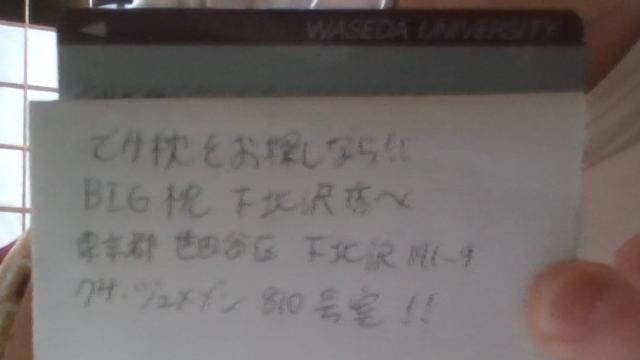 WASEDA UNIVERSITY
でカ枕をお探しなら!!
BIG枕 下北沢店へ
東京都 世田谷区 下北沢
810号室 !!